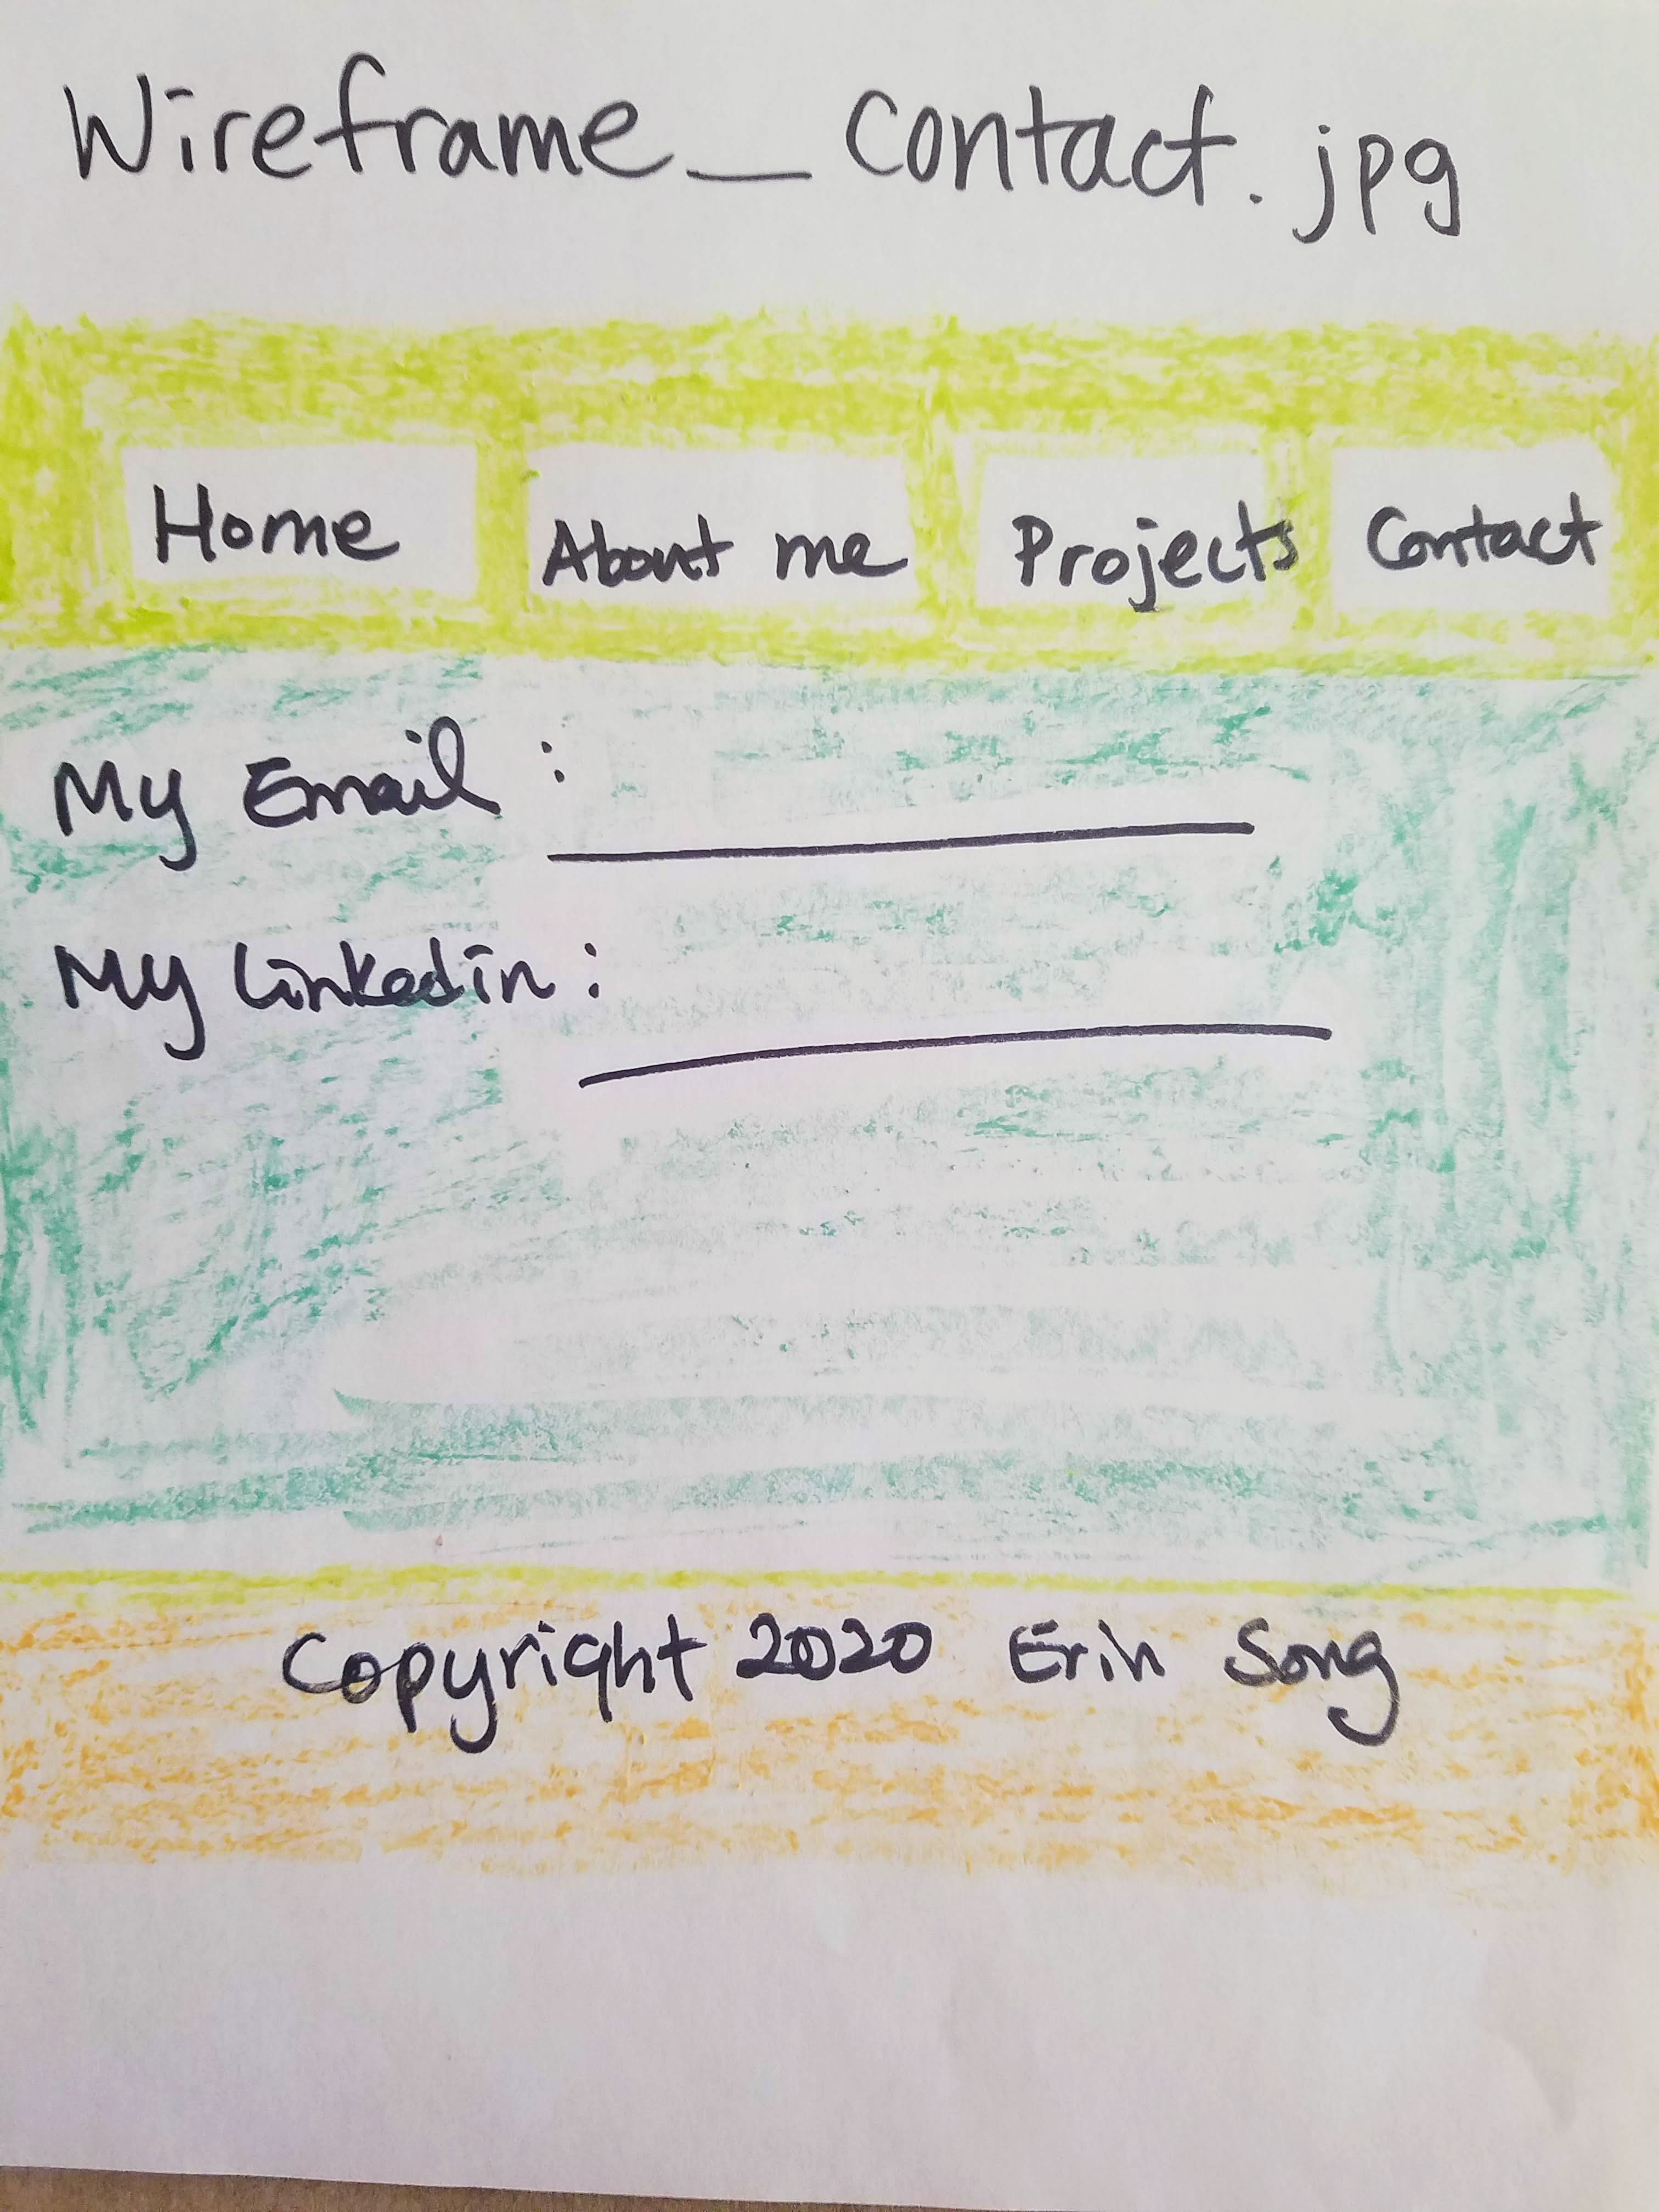 Wireframe_contact.jpg
Home About me Projects Contact
My Email :
My Linkedin :
Copyright 2020 Erin Song